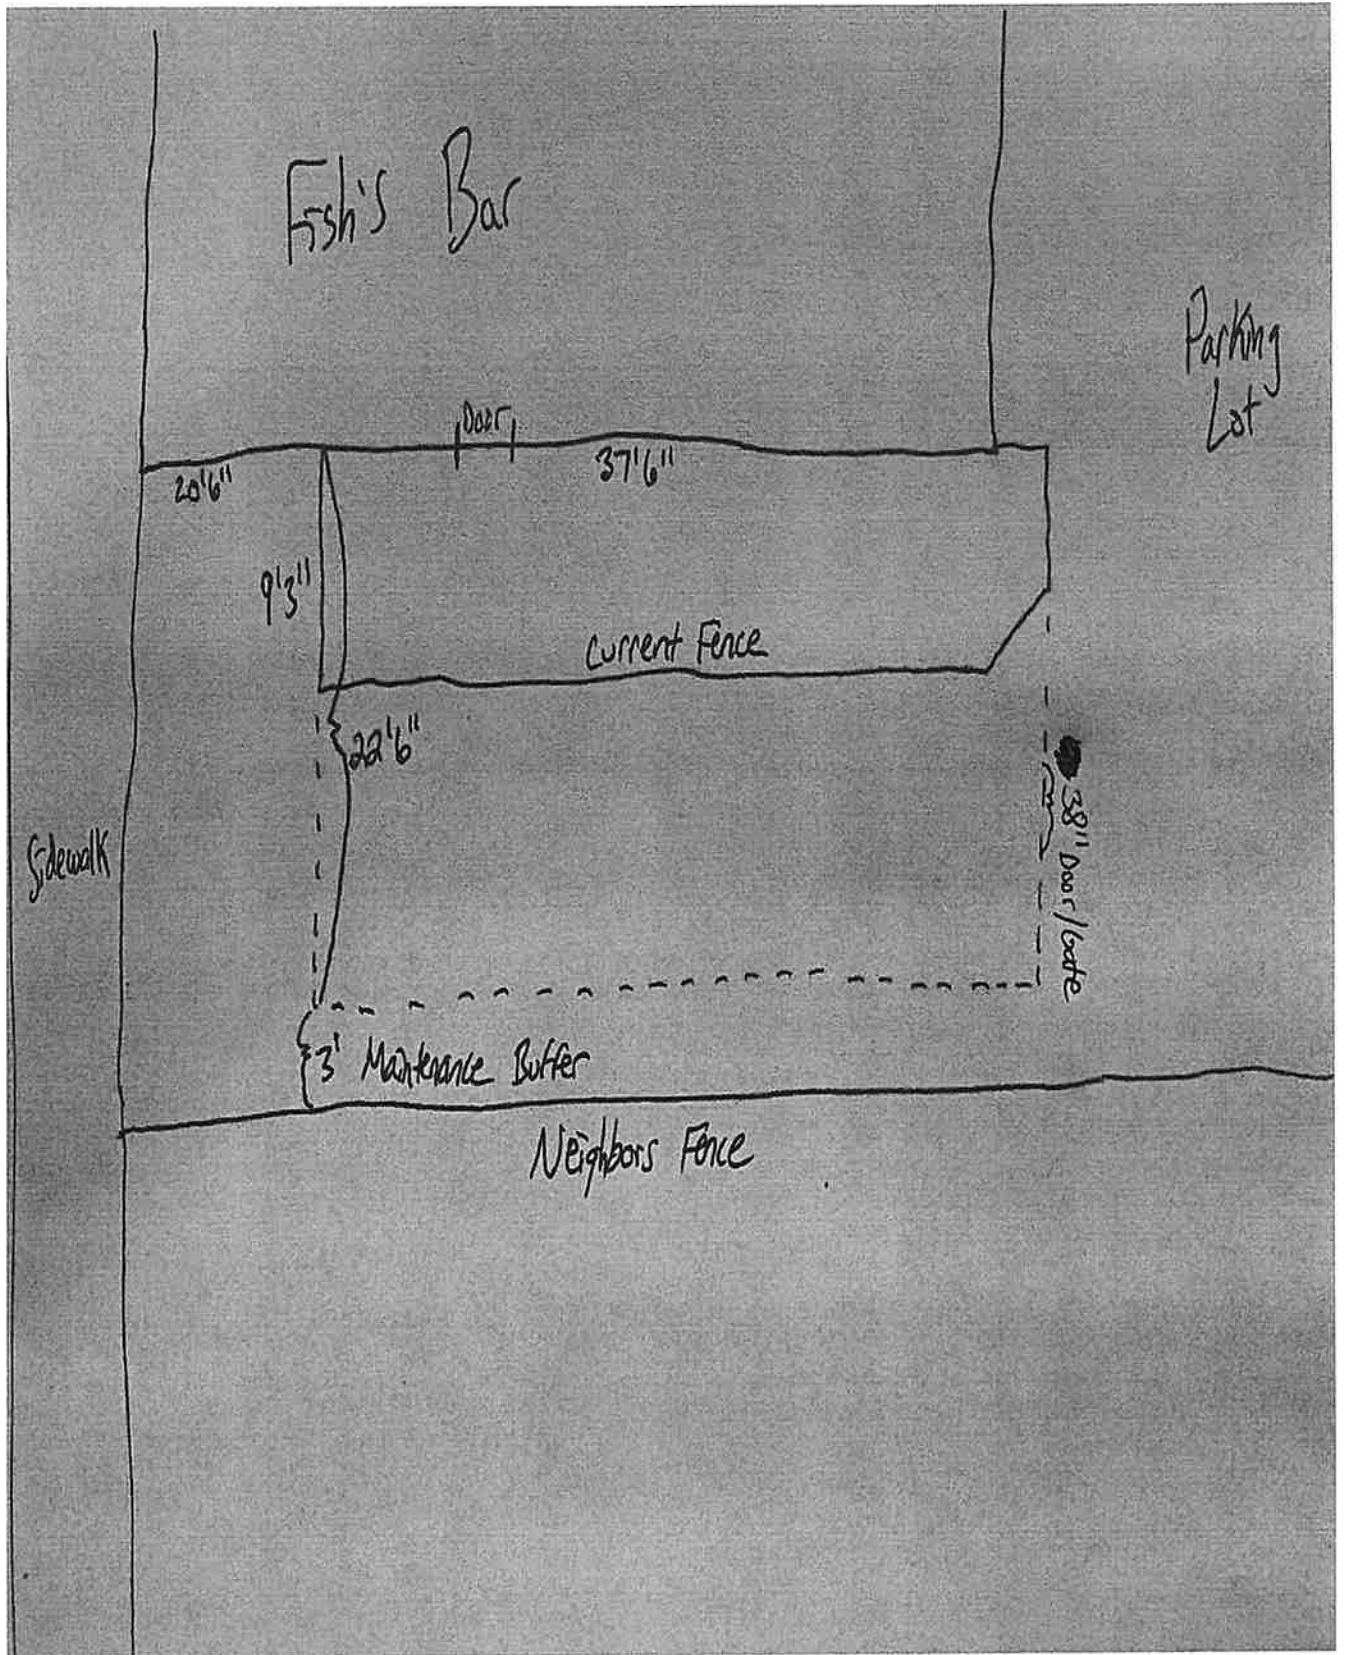 Fish's Bar
Parking
Lot
Door
20'6"
37'6"
9'3"
Current Fence
22'6"
38" Door/Gate
Sidewalk
3' Maintenance Buffer
Neighbors Fence